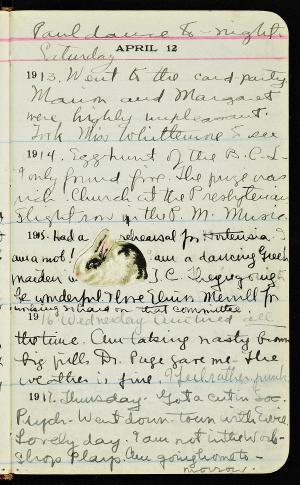 Paul dance to-night.
Saturday
APRIL 12
1913. Went to the card party
Marion and Margaret
were highly unpleasant.
Took Miss Whittemore to see
1914. Egg hunt of the B.C.L.
I only found five. The prize was
rich. Church at the Presbyterian
Slight row in the P.M. Music
1915. Had a rehearsal for Hortensia. I
am a mob! I am a dancing Greek
maiden J.C. They are going to
be wonderful. I love Elinor Merrill for
working so hard on that committee
1916 Wednesday Am tired all
the time. Am taking nasty brown
big pills Dr. Page gave me. The
weather is fine. I feel rather punk
1917. Thursday. Got a cut in Soc.
Psych. Went down-town with Evie.
Lovely day. I am not in the Work-
shop Plays. Am going home to-
morrow.